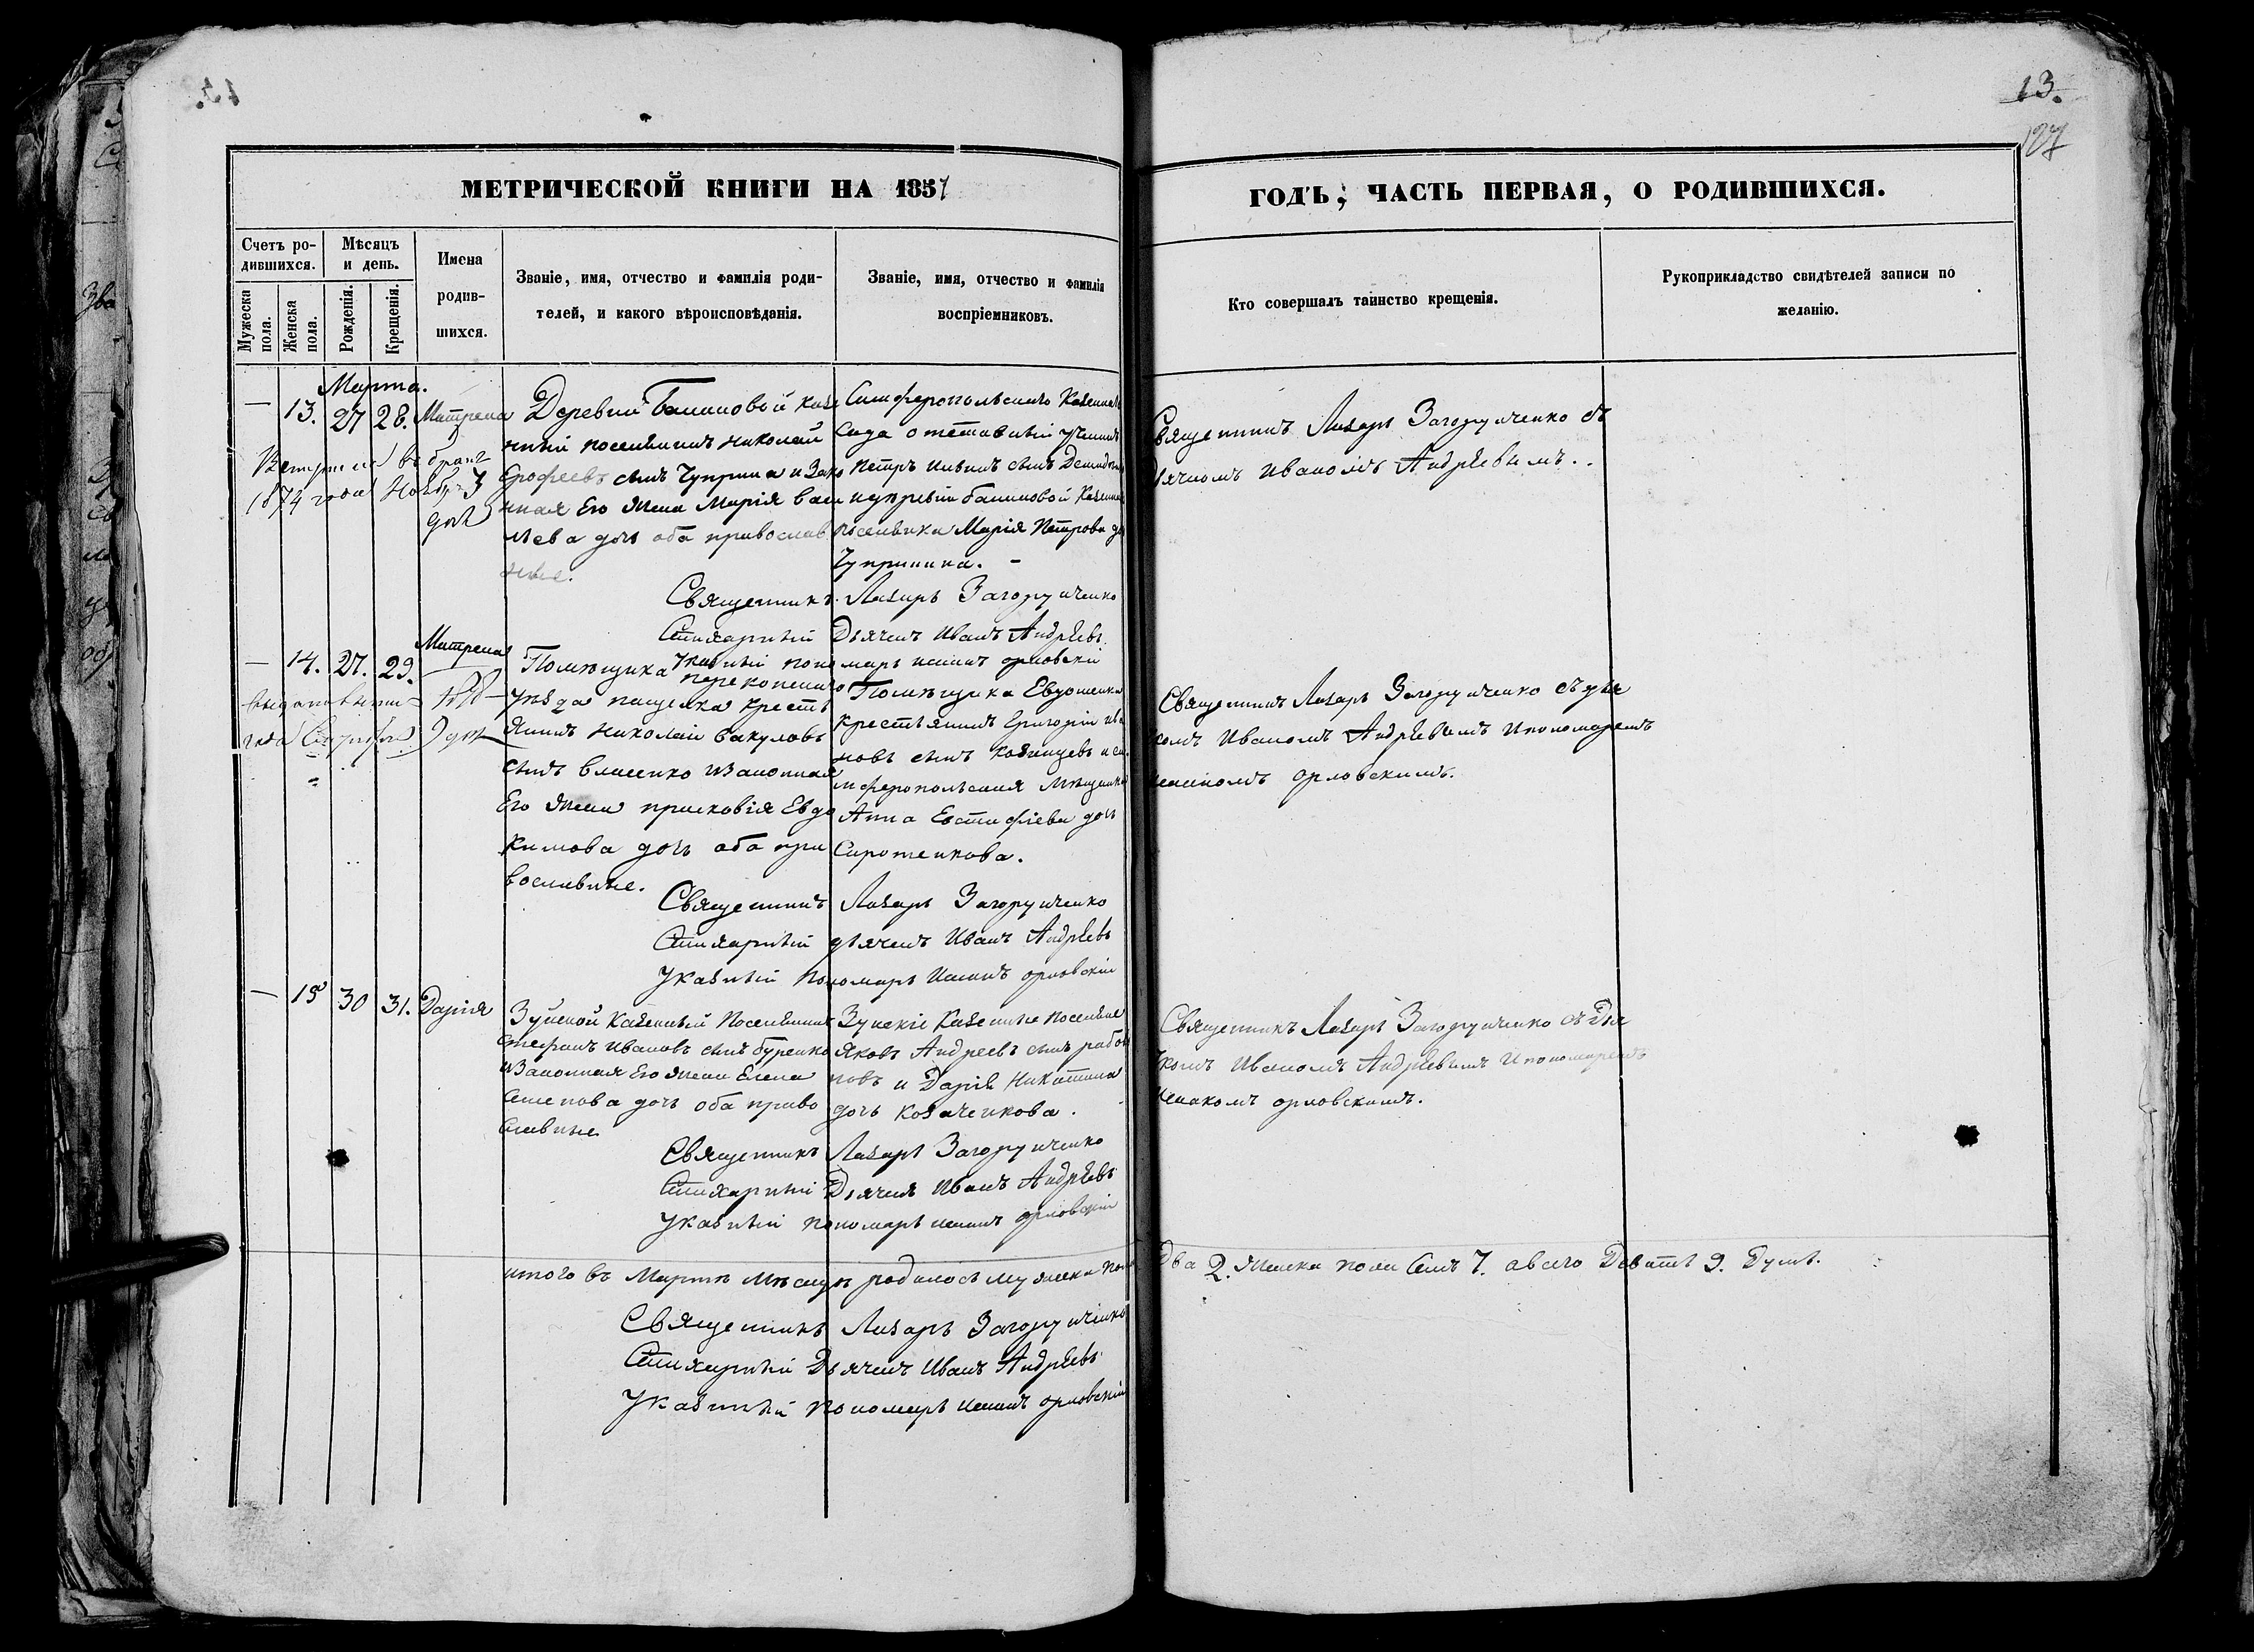 13.
127
МЕТРИЧЕСКОЙ КНИГИ НА 1857
ГОДЪ, ЧАСТЬ ПЕРВАЯ, О РОДИВШИХСЯ.
Счетъ ро-
дившихся.
Мужеска
пола.
Женска
пола.
Мѣсяцъ
и день.
Рожденія.
Крещенія.
Имена
родив-
шихся.
Званіе, имя, отчество и фамилія роди-
телей, и какого вѣроисповѣданія.
Званіе, имя, отчество и фамилія
воспріемниковъ.
Кто совершалъ таинство крещенія.
Рукоприкладство свидѣтелей записи по
желанію.
Марта.
— 13. 27 28. Матрена
въ бракъ
1874 года Ноябр. 3
дня
Деревни казе
нный поселянинъ Николай
Ерофеевъ сынъ Чуприна и Зако
нная Его жена Марія Васи
льева дочь оба православ
ные.
Симферопольскаго Казеннаго
Сада отставный
Петръ сынъ
Казенная
поселянка Марія Петрова до
Чуприна. -
Священникъ Лазарь Загоруйченко съ
Дячкомъ Иваномъ Андрѣевымъ..
Священникъ Лазарь Загоруйченко
Стихарный Дьячекъ Иванъ Андрѣевъ
Указный пономарь орловскій
Матрена
— 14. 27. 29.
года 9 дня
Помѣщика перекопскаго
уѣзда кресть
янинъ Николай Вакуловъ
сынъ Власенко и Законная
Его жена прасковія Евдо
кимова дочь оба пра
вославные.
Помѣщика
крестьянинъ Григорій Ива
новъ сынъ и си
мферопольская мѣщанка
Анна Евстафіева дочь
Сиротенкова.
Священникъ Лазарь Загоруйченко съ дья
комъ Иваномъ Андрѣевымъ и пономаремъ
орловскимъ.
Священникъ Лазарь Загоруйченко
Стихарный дьячекъ Иванъ Андрѣевъ
Указный пономарь орловскій
— 15 30 31. Дарія
Зуйской Казенный Поселянинъ
Стефанъ Ивановъ сынъ буренко
и Законная Его жена Елена
дочь оба право
славные
Зуйскіе Казенные поселяне
Яковъ Андреевъ сынъ
и Дарія Никитина
дочь Козаченкова.
Священникъ Лазарь Загоруйченко съ Дья
комъ Иваномъ Андрѣевымъ и пономаремъ
орловскимъ.
Священникъ Лазарь Загоруйченко
Стихарный Дьячекъ Иванъ Андрѣевъ
Указный пономарь орловскій
итого въ Мартѣ Мѣсяцѣ родилось мужеска пола Два 2. Женска пола Семъ 7. а всего Девять 9. Душъ.
Священникъ Лазарь Загоруйченко
Стихарный Дьячекъ Иванъ Андрѣевъ
Указный пономарь орловскій